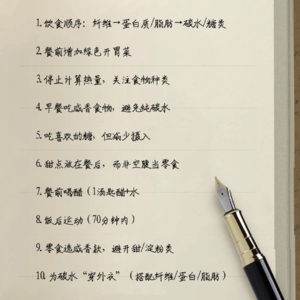 1. 饮食顺序：纤维→蛋白质/脂肪→碳水/糖类
2. 餐前增加绿色开胃菜
3. 停止计算热量，关注食物种类
4. 早餐吃咸香食物，避免纯碳水
5. 吃喜欢的糖，但减少摄入
6. 甜点放在餐后，而非空腹当零食
7. 餐前喝醋（1汤匙醋+水）
8. 饭后运动（70分钟内）
9. 零食选咸香款，避开甜/淀粉类
10. 为碳水“穿外衣”（搭配纤维/蛋白/脂肪）